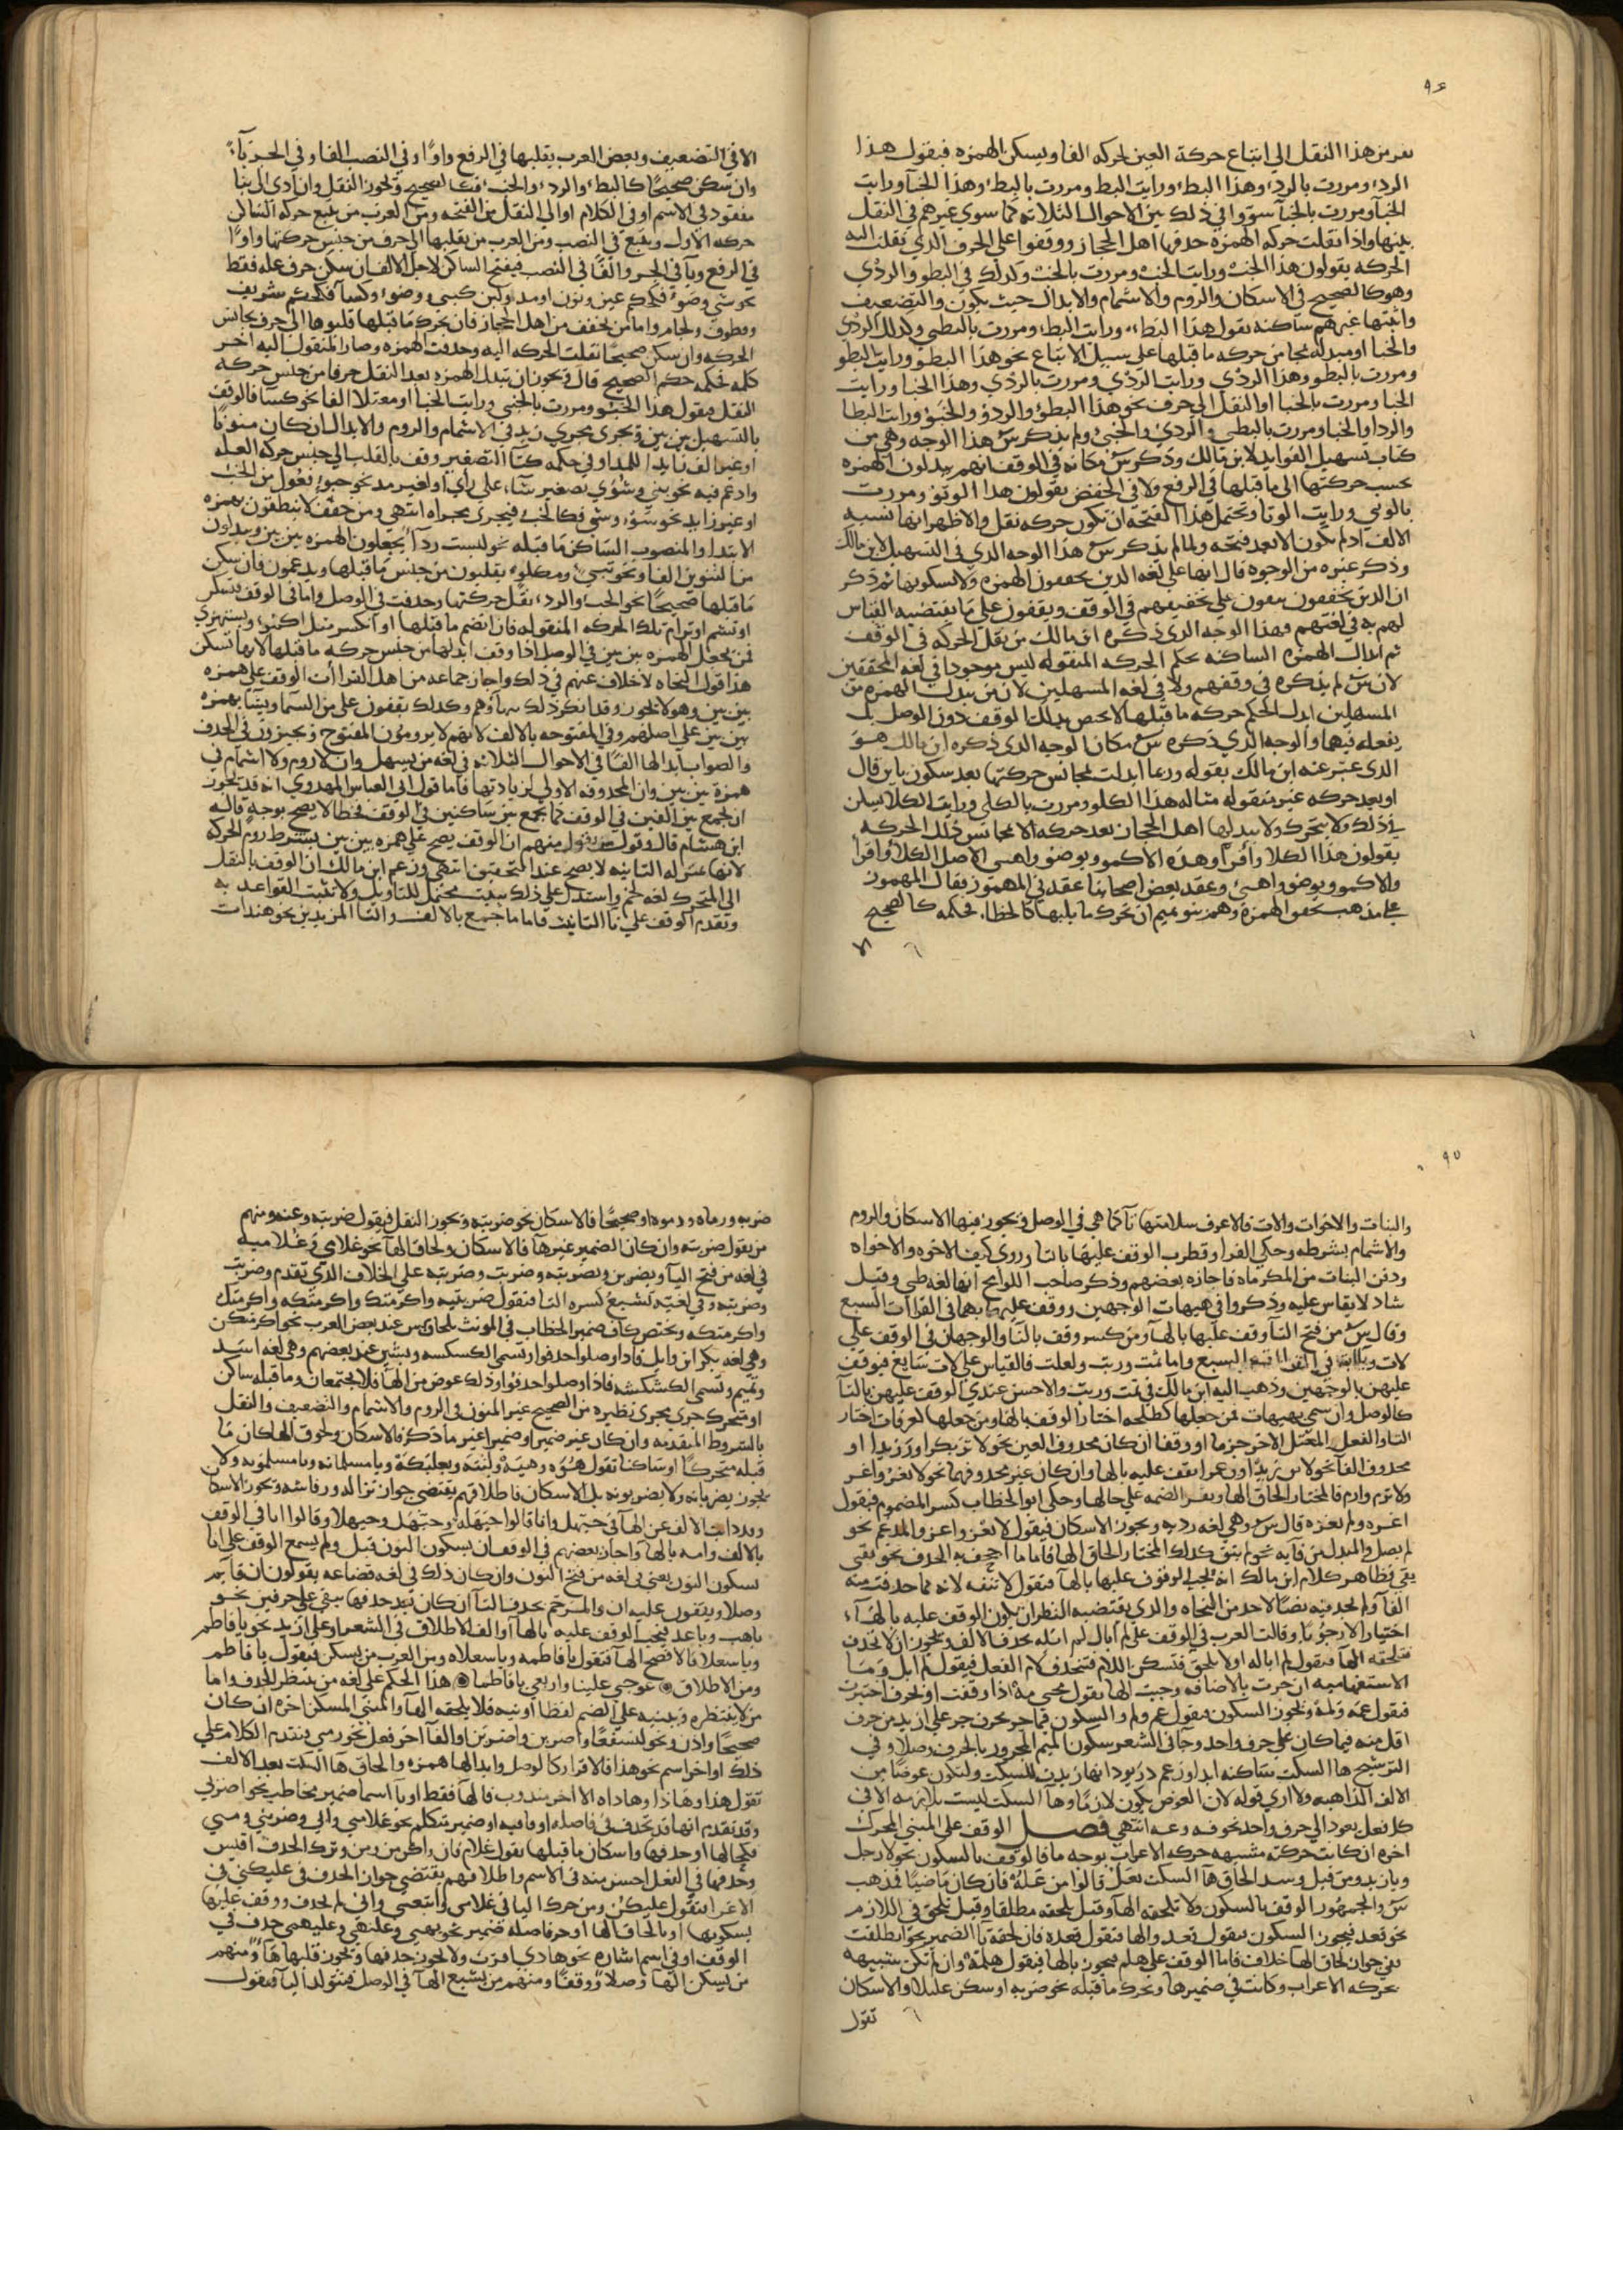 ٩٤
يفر من هذا النقل الى اتباع حركة العين لحركه الفا ويسكن الهمزه فيقول هذا
الرد ومررت بالرد وهذا البط ورايت البط ومررت بالبط وهذا الخبا ورايت
الخبا ومررت بالخبا سووا في ذلك بين الاحوال الثلاثه كما سوي غيرهم في النقل
بينها واذا نقلت حركه الهمزه حذفها اهل الحجاز ووقفوا على الحرف الذي نقلت اليه
الحركه يقولون هذا الخب ورايت الخب ومررت بالخب وكذلك في البطو والردي
وهو كالصحيح في الاسكان والروم والاشمام والابدال حيث يكون والتضعيف
واثبتها غيرهم ساكنه تقول هذا البطء ورايت البطء ومررت بالبطي وكذلك الردي
والخبا او مبدله بمجانس حركه ما قبلها على سبيل الاتباع نحو هذا البطو ورايت البطو
ومررت بالبطو وهذا الردي ورايت الردي ومررت بالردي وهذا الخبا ورايت
الخبا ومررت بالخبا او النقل الى حرف نحو هذا البطو والردو والخبو ورايت البطا
والردا والخبا ومررت بالبطي والردي والخبي ولم يذكر س هذا الوجه وهي من
كتاب تسهيل الفوايد لابن مالك وذكر س مكانه في الوقف انهم يبدلون الهمزه
بحسب حركتها الى ما قبلها في الرفع ولا في الخفض يقولون هذا الوثو ومررت
بالوثي ورايت الوثا ويحتمل هذا الفتحه ان تكون حركه نقل والاظهر انها نسبه
الالف اذ لم يكون الا بعد فتحه ولما لم يذكر س هذا الوجه الذي في التسهيل لابن مالك
وذكر غيره من الوجوه قال انها على لغه الذين يحققون الهمزه ولا يسكونها ثم ذكر
ان الذين يخففون يبقون على تخفيفهم في الوقف ويقفون على ما يقتضيه القياس
لهم به في لغتهم وهذا الوجه الذي ذكره ابن مالك من نقل الحركه في الوقف
ثم ابدال الهمزه الساكنه بحكم الحركه المنقوله ليس موجودا في لغه المحققين
لان س لم يذكره في وقفهم ولا في لغه المسهلين لان من يبدل الهمزه من
المسهلين ابدل بحكم حركه ما قبلها لا يخص بذلك الوقف دون الوصل بل
يفعله فيهما والوجه الذي ذكره س مكان الوجه الذي ذكره ابن مالك هو
الذي عبر عنه ابن مالك بقوله وربما ابدلت بمجانس حركتها بعد سكون باين قال
او بعد حركه غير منقوله مثاله هذا الكلو ومررت بالكلي ورايت الكلا
ذلك ولا يتحرك ولا يبدلها اهل الحجاز بعد حركه الا بمجانس تلك الحركه
يقولون هذا الكلا واقرا وهذه الاكمو ويوضو واهني الاصل الكلا واقرا
والاكمو ويوضو واهني وعقد بعض اصحابنا عقد في المهموز يقال المهموز
على مذهب محققو الهمزه وهم بنو تميم ان تحرك ما يليها كالخطا فحكمه كالصحيح
الا
الا في التضعيف وبعض العرب يقلبها في الرفع واوا وفي النصب الفا وفي الجر يا
وان سكن صحيحا كالبط والرد والخب فكا الصحيح وتجوز النقل وان ادى الى بنا
مفقود في الاسم او في الكلام او الى النقل من الفتحه ومن العرب من يتبع حركه الساكن
حركه الاول ويتبع في النصب ومن العرب من يقلبها الى حرف من جنس حركتها واوا
في الرفع ويا في الجر والفا في النصب فيفتح الساكن لاجل الالف ان سكن حرف عله فقط
نحو شي وضوء فكحكم عين ونون او مد ولين كبي ووضو وكسا فكحكم شريف
وقطوف ولجام واما من يخفف من اهل الحجاز فان تحرك ما قبلها قلبوها الى حرف يجانس
الحركه وان سكن صحيحا نقلت الحركه اليه وحذفت الهمزه وصار المنقول اليه اخر
كلمه فحكمه حكم الصحيح قال وتجوز ان تبدل الهمزه بعد النقل حرفا من جنس حركه
النقل فيقول هذا الخبو ومررت بالخبي ورايت الخبا او معتلا الفا نحو كسا فالوقف
بالتسهيل بين بين ويجري مجرى زيد في الاشمام والروم والابدال ان كان منونا
او غير الف زايدا للمد او في حكمه كتا التصغير وقف بالقلب الى جنس حركه العله
وادغم فيه نحو بني وشوي تصغير شاء على راي او لغير مد نحو جبو تقول من الخب
او غير زايد نحو سو وشي فكالخب فيجرى مجراه انتهي ومن حقق لا ينطقون بهمزه
الابتدا والمنصوب الساكن ما قبله نحو لبست ردا يجعلون الهمزه بين بين ويبدلون
من التنوين الفا ونحو بني ومطلو يقلبون من جنس ما قبلها ويدغمون فان سكن
ما قبلها صحيحا نحو الخب والرد نقل حركتها وحذفت في الوصل واما في الوقف فتسكن
او تشم او ترام تلك الحركه المنقوله فان انضم ما قبلها او انكسر مثل اكمو ويستهزي
فمن يجعل الهمزه بين بين في الوصل اذا وقف ابدلها من جنس حركه ما قبلها لانها تسكن
هذا قول النحاه لا خلاف عنهم في ذلك واجاز جماعه من اهل القراات الوقف على همزه
بين بين وهو لا يجوز وقد انكر ذلك وكذلك يقفون على من السما ويتبا بهمزه
بين بين على اصلهم وفي المفتوحه بالالف لانهم لا يرومون المفتوح ويجيزون في الحذف
والصواب ابدالها الفا في الاحوال الثلاثه في لغه من يسهل وان لا روم ولا اشمام في
همزه بين بين وان المحذوفه الاولى لزيادتها فاما قول ابي العباس المهدوي انه قد يجوز
ان يجمع بين الفين في الوقف كما يجمع بين ساكنين في الوقف فخطا لا يصح بوجه قاله
ابن هشام قال وقول منهم ان الوقف يصح على همزه بين بين بشرط روم الحركه
لانها بمنزله الثابته لا يصح عند المحققين انتهى وزعم ابن مالك ان الوقف بالنقل
الى المتحرك لغه لخم واستدل على ذلك ببيت محتمل للتاويل ولا تثبت القواعد به
وتقدم الوقف على تا التانيث فاما ما جمع بالالف والتا المزيدين نحو هندات
٩٥
والبنات والاخوات والات فالاعرف سلامتها تا كما هي في الوصل ويجوز فيها الاسكان والروم
والاشمام بشرطه وحكى الفرا وقطرب الوقف عليها بالتا وروي كيف الاخوه والاخواه
ودفن البنات من المكرماه فاجازه بعضهم وذكر صاحب اللوامح انها لغه طي وقيل
شاذ لا يقاس عليه وذكروا في هيهات الوجهين ووقف عليها بهما في القراات السبع
وقال س من فتح التا وقف عليها بالها ومن كسر وقف بالتا والوجهان في الوقف على
لات في القراات السبع واما ثمت وربت ولعلت فالقياس على لات سايغ فيوقف
عليهن بالوجهين وذهب اليه ابن مالك في ثمت وربت والاحسن عندي الوقف عليهن بالتا
كالوصل وان سمي بهيهات فمن جعلها كطلحه اختار الوقف بالها ومن جعلها كعرفات اختار
التا والفعل المعتل الاخر جزما او وقفا ان كان محذوف العين نحو لا تر بكرا ور زيدا او
محذوف الفا نحو لا تق زيدا وق عمرا تقف عليه بالها وان كان غير محذوفهما نحو لا تغز واغز
ولا ترم وارم فالمختار الحاق الها وتقر الضمه على حالها وحكى ابو الخطاب كسر المضموم فيقول
اغزه ولم يغزه قال س وهي لغه رديه ويجوز الاسكان فيقول لا تغز واغز والمدغم نحو
لم يصل والمبدل من فايه نحو لم يتق كذلك المختار الحاق الها فاما ما اجحف به الحذف نحو يقي
يقي فظاهر كلام ابن مالك انه يجب الوقوف عليها بالها فتقول لا تتقه لانه مما حذفت منه
الفا ولم نجد فيه نصا لاحد من النحاه والذي يقتضيه النظر ان يكون الوقف عليه بالهاء
اختيارا لا وجوبا وقالت العرب في الوقف على لم ابال لم ابله بحذف الالف ويجوز ان لا تحذف
فتلحقه الها فتقول لم اباله اولا يلحق فتسكن اللام فتحذف لام الفعل فيقول لم ابل وما
الاستفهاميه ان جرت بالاضافه وجبت الها تقول مجي مه اذا وقفت او بحرف اختيرت
فتقول عمه ولمه ويجوز السكون فتقول عم ولم والسكون فيما جر بحرف جر على ازيد من حرف
اقل منه فيما كان على حرف واحد وجا في الشعر سكون الميم المجرور بالحرف وصلا وفي
الترشيح ها السكت ساكنه ابدا وزعم دريود انها زيدت للسكت ولتكون عوضا من
الالف الذاهبه ولا اري قوله لان العوض يكون لازما وها السكت ليست بلازمه الا في
كل فعل يعود الى حرف واحد نحو فه وعه انتهي فصل الوقف على المبني المحرك
اخره ان كانت حركته مشبهه حركه الاعراب بوجه ما فالوقف بالسكون نحو لا رجل
ويا زيد ومن قبل وشذ الحاق ها السكت بعل قالوا من عله فان كان ماضيا فذهب
س والجمهور الوقف بالسكون ولا تلحقه الها وقيل يلحقه مطلقا وقيل يلحق في اللازم
نحو قعد فيجوز السكون فتقول قعد والها فتقول قعده فان لحقه تا الضمير نحو انطلقت
ففي جواز لحاق الها خلاف فاما الوقف على هلم فيجوز بالها فيقول هلمه وان لم تكن شبيهه
بحركه الاعراب وكانت في ضمير ها وتحرك ما قبله نحو ضربه او سكن عليلا والاسكان
تقول
ضربه ورماه ودموه او صحيحا فالاسكان نحو ضربته ويجوز النقل فيقول ضربته وعنه ومنهم
من يقول ضربته وان كان الضمير غيرها فالاسكان ولحاق الها نحو غلامي وغلاميه
في لغه من فتح اليا ويضربن ويضربنه وضربت وضربته على الخلاف الذي تقدم وضربت
وضربته وفي لغيه تشبع كسره التا فتقول ضربتيه واكرمتك واكرمتكه واكرمتك
واكرمتكه ويختص كاف ضمير الخطاب في المونث بلحاق س عند بعض العرب نحو اكرمتكس
وهي لغه بكر ابن وايل فاذا وصلوا حذفوا وتسمى الكسكسه وبشين عند بعضهم وهي لغه اسد
وتميم وتسمى الكشكشه فاذا وصلوا حذفوا وذلك عوض من الها فلا يجتمعان وما قبله ساكن
او متحرك جري مجرى نظيره من الصحيح غير المنون في الروم والاشمام والتضعيف والنقل
بالشروط المتقدمه وان كان غير ضمير او ضميرا غير ما ذكر فالاسكان ولحوق الها كان ما
قبله متحركا او ساكنا تقول هوه وهيه وابنته وبعلبكه ويا مسلمانه ويا مسلمونه ولا
يجوز يضربانه ولا يضربونه بل الاسكان فاطلاقهم يقتضي جواز نزاله ورقاشه وتجوز الاسكان
وبدلت الالف عن الها في حيهل وانا قالوا حيهله وحيهل وحيهلا وقالوا انا في الوقف
بالالف وانه بالها واجاز بعضهم في الوقف ان بسكون النون قيل ولم يسمع الوقف على انا
بسكون النون يعني في لغه من فتح النون وان كان ذلك في لغه قضاعه يقولون ان قايم
وصلا ويقفون عليه ان والمرخم بحذف التا ان كان بعد حذفها يبقى على حرفين نحو
يا هب ويا عد فيجب الوقف عليه بالها او الف الاطلاق في الشعر او على ازيد نحو يا فاطم
ويا سعلا فالافصح الها فتقول يا فاطمه ويا سعلاه ومن العرب من يسكن فيقول يا فاطم
ومن الاطلاق عوجي علينا واربعي يا فاطما هذا الحكم على لغه من ينتظر الحذف واما
من لا ينتظره ويبنيه على الضم لفظا او نيه فلا يلحقه الها والمبني المسكن اخره ان كان
صحيحا واذن ونحو لنسفعا واضربن واضربن او الفا اخر فعل نحو رمى بتقدم الكلام على
ذلك او اخر اسم نحو هذا فالاقرار كالوصل وابدالها همزه والحاق ها السكت بعد الالف
تقول هذا وهاذا وهاذاه الا اخر مندوب فالها فقط او يا اسما ضمير مخاطب نحو اضربي
وقد تقدم انها قد تحذف في فاصله او قافيه او ضمير متكلم نحو غلامي واني وضربني ومني
فكحالها او حذفها واسكان ما قبلها تقول غلام فان واكرمن ومن وترك الحذف اقيس
وحذفها في الفعل احسن منه في الاسم واطلاقهم يقتضي جواز الحذف في عليكني في
الاغرا فتقول عليكن ومن حرك اليا في غلامي واتبعني واني لم يحذف ووقف عليها
بسكونها او بالحاق الها او حرف صله ضمير نحو بهي وعليهي وعليهمي حذف في
الوقف او في اسم اشاره نحو هاذي اقرت ولا يجوز حذفها ويجوز قلبها ها ومنهم
من يسكن الها وصلا ووقفا ومنهم من يشبع الها في الوصل فيتولد اليا فيقول